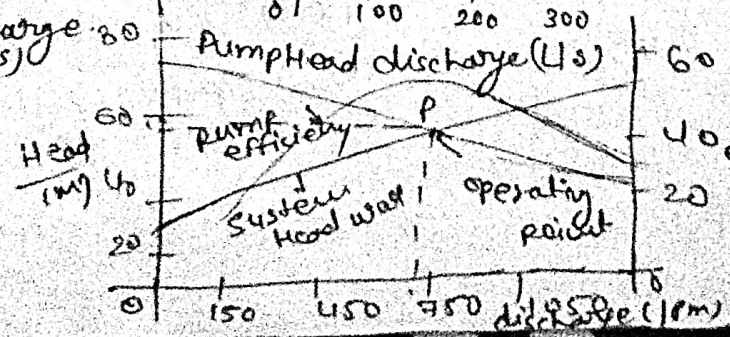 arge 80
s)
0 100 200 300
Pump Head discharge (L/s)
60
60
P
pump
effisiency
Head
(m) 40
40
System
Head
operating
point
20
20
0
0 150 450 750 discharge (lpm)